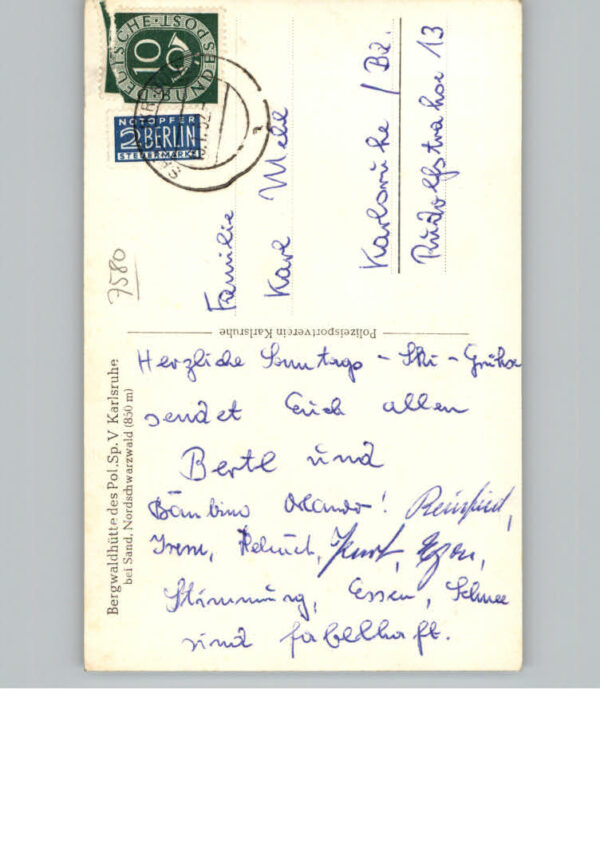 DEUTSCHE BUNDESPOST
10
NOTOPFER
2 BERLIN
STEUERMARKE
Familie
Karl
Karlsruhe / Bd.
13
7580
Polizeisportverein Karlsruhe
Bergwaldhütte des Pol.Sp.V Karlsruhe
bei Sand, Nordschwarzwald (850 m)
Herzliche Sonntags - Ski - Grüße
sendet Euch allen
Bertl und
Bambino Orlando! Reinfried,
Helmut, Kurt, Egon,
Stimmung, Essen, Schnee
sind fabelhaft.